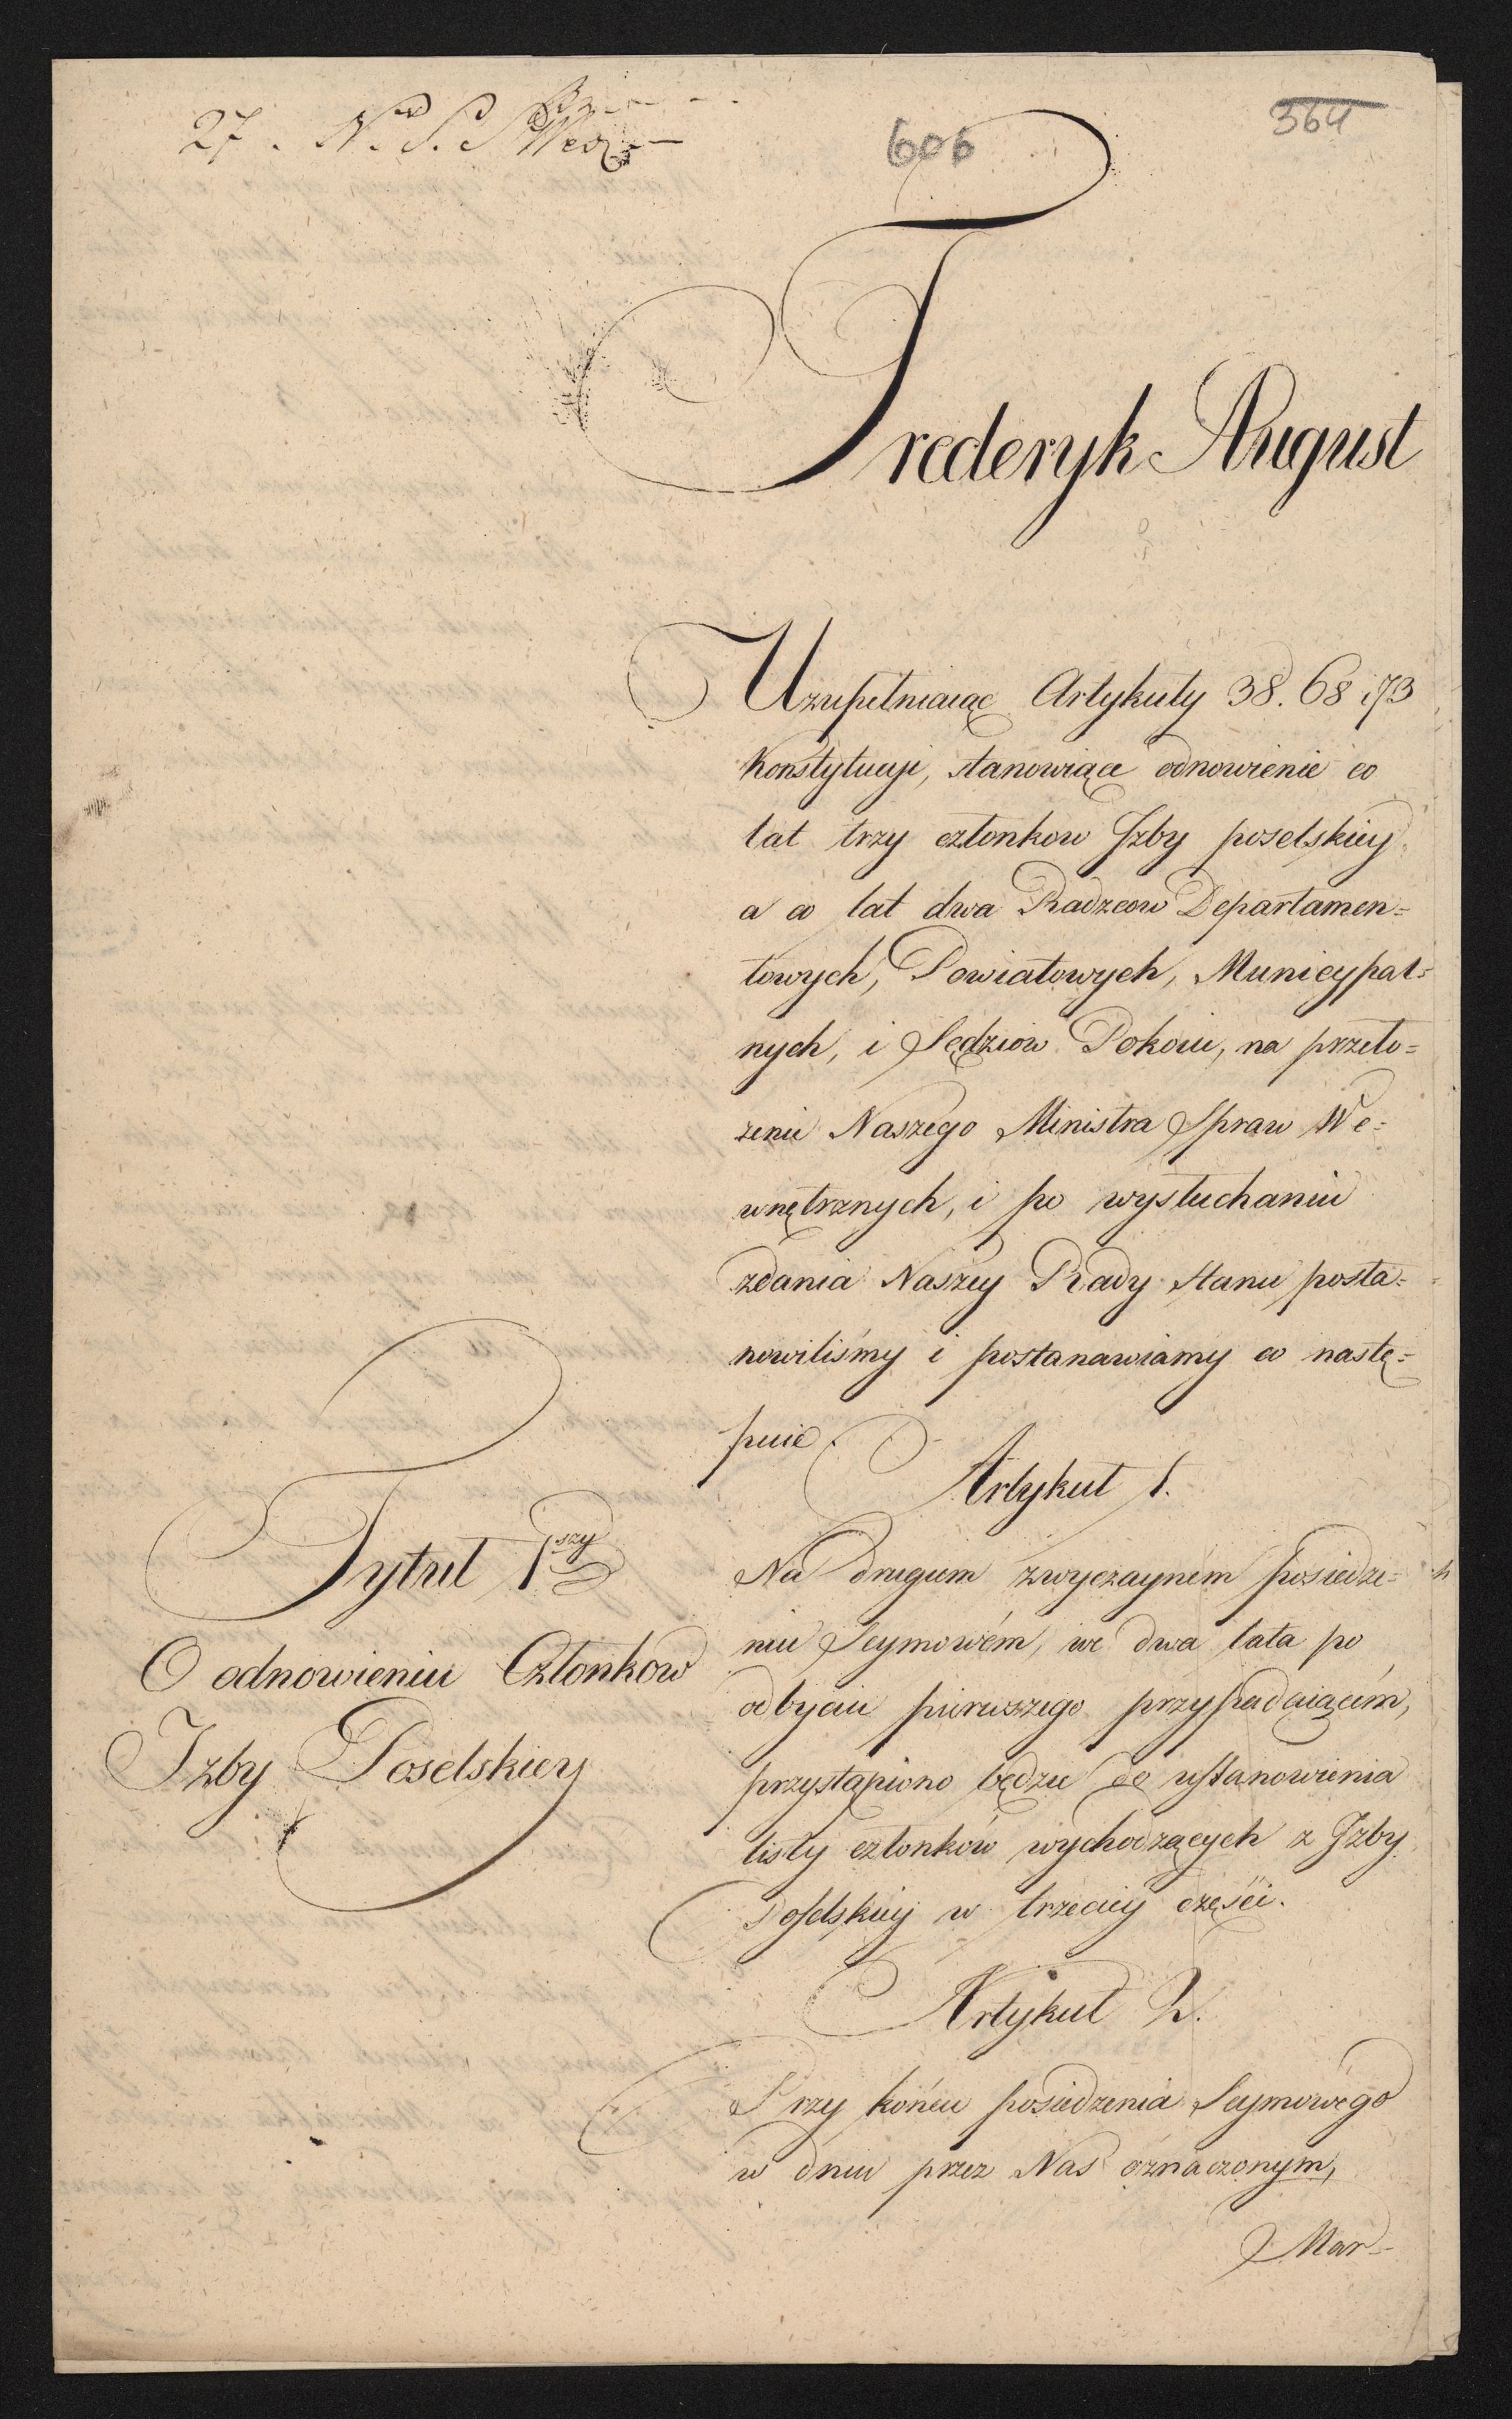 27. N. S. S Wew
606
364
Frederyk August
Uzupełniaiąc Artykuły 38. 68 i 73
Konstytucyi, stanowiące odnowienie co
lat trzy członkow Jzby poselskiey
a co lat dwa Radzcow Departamen=
towych, Powiatowych, Municypal=
nych, i Sędziow Pokoiu, na przeło=
żenie Naszego Ministra Spraw We=
wnętrznych, i po wysłuchaniu
zdania Naszey Rady Stanu posta=
nowiliśmy i postanawiamy co nastę=
puie
Artykuł 1.
Tytuł 1szy
O odnowieniu Członkow
Jzby Poselskiey
Na drugiem zwyczaynem posiedze=
niu Seymowém, we dwa lata po
odbyciu pierwszego przypadaiącém,
przystąpiono będzie do ustanowienia
listy członków wychodzących z Jzby
Poselskiey w trzeciey części.
Artykuł 2.
Przy końcu posiedzenia Seymowego
w dniu przez Nas oznaczonym,
Mar=